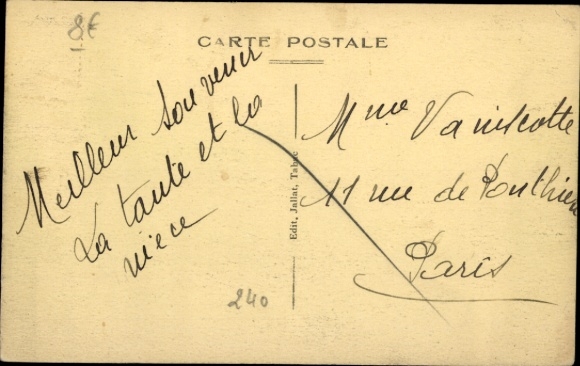 8€
CARTE POSTALE
Meilleur souvenir
La tante et la
niece
Mme Vanscotte
11 rue de Ponthieu
Paris
Edit. Jallat, Tabac
240